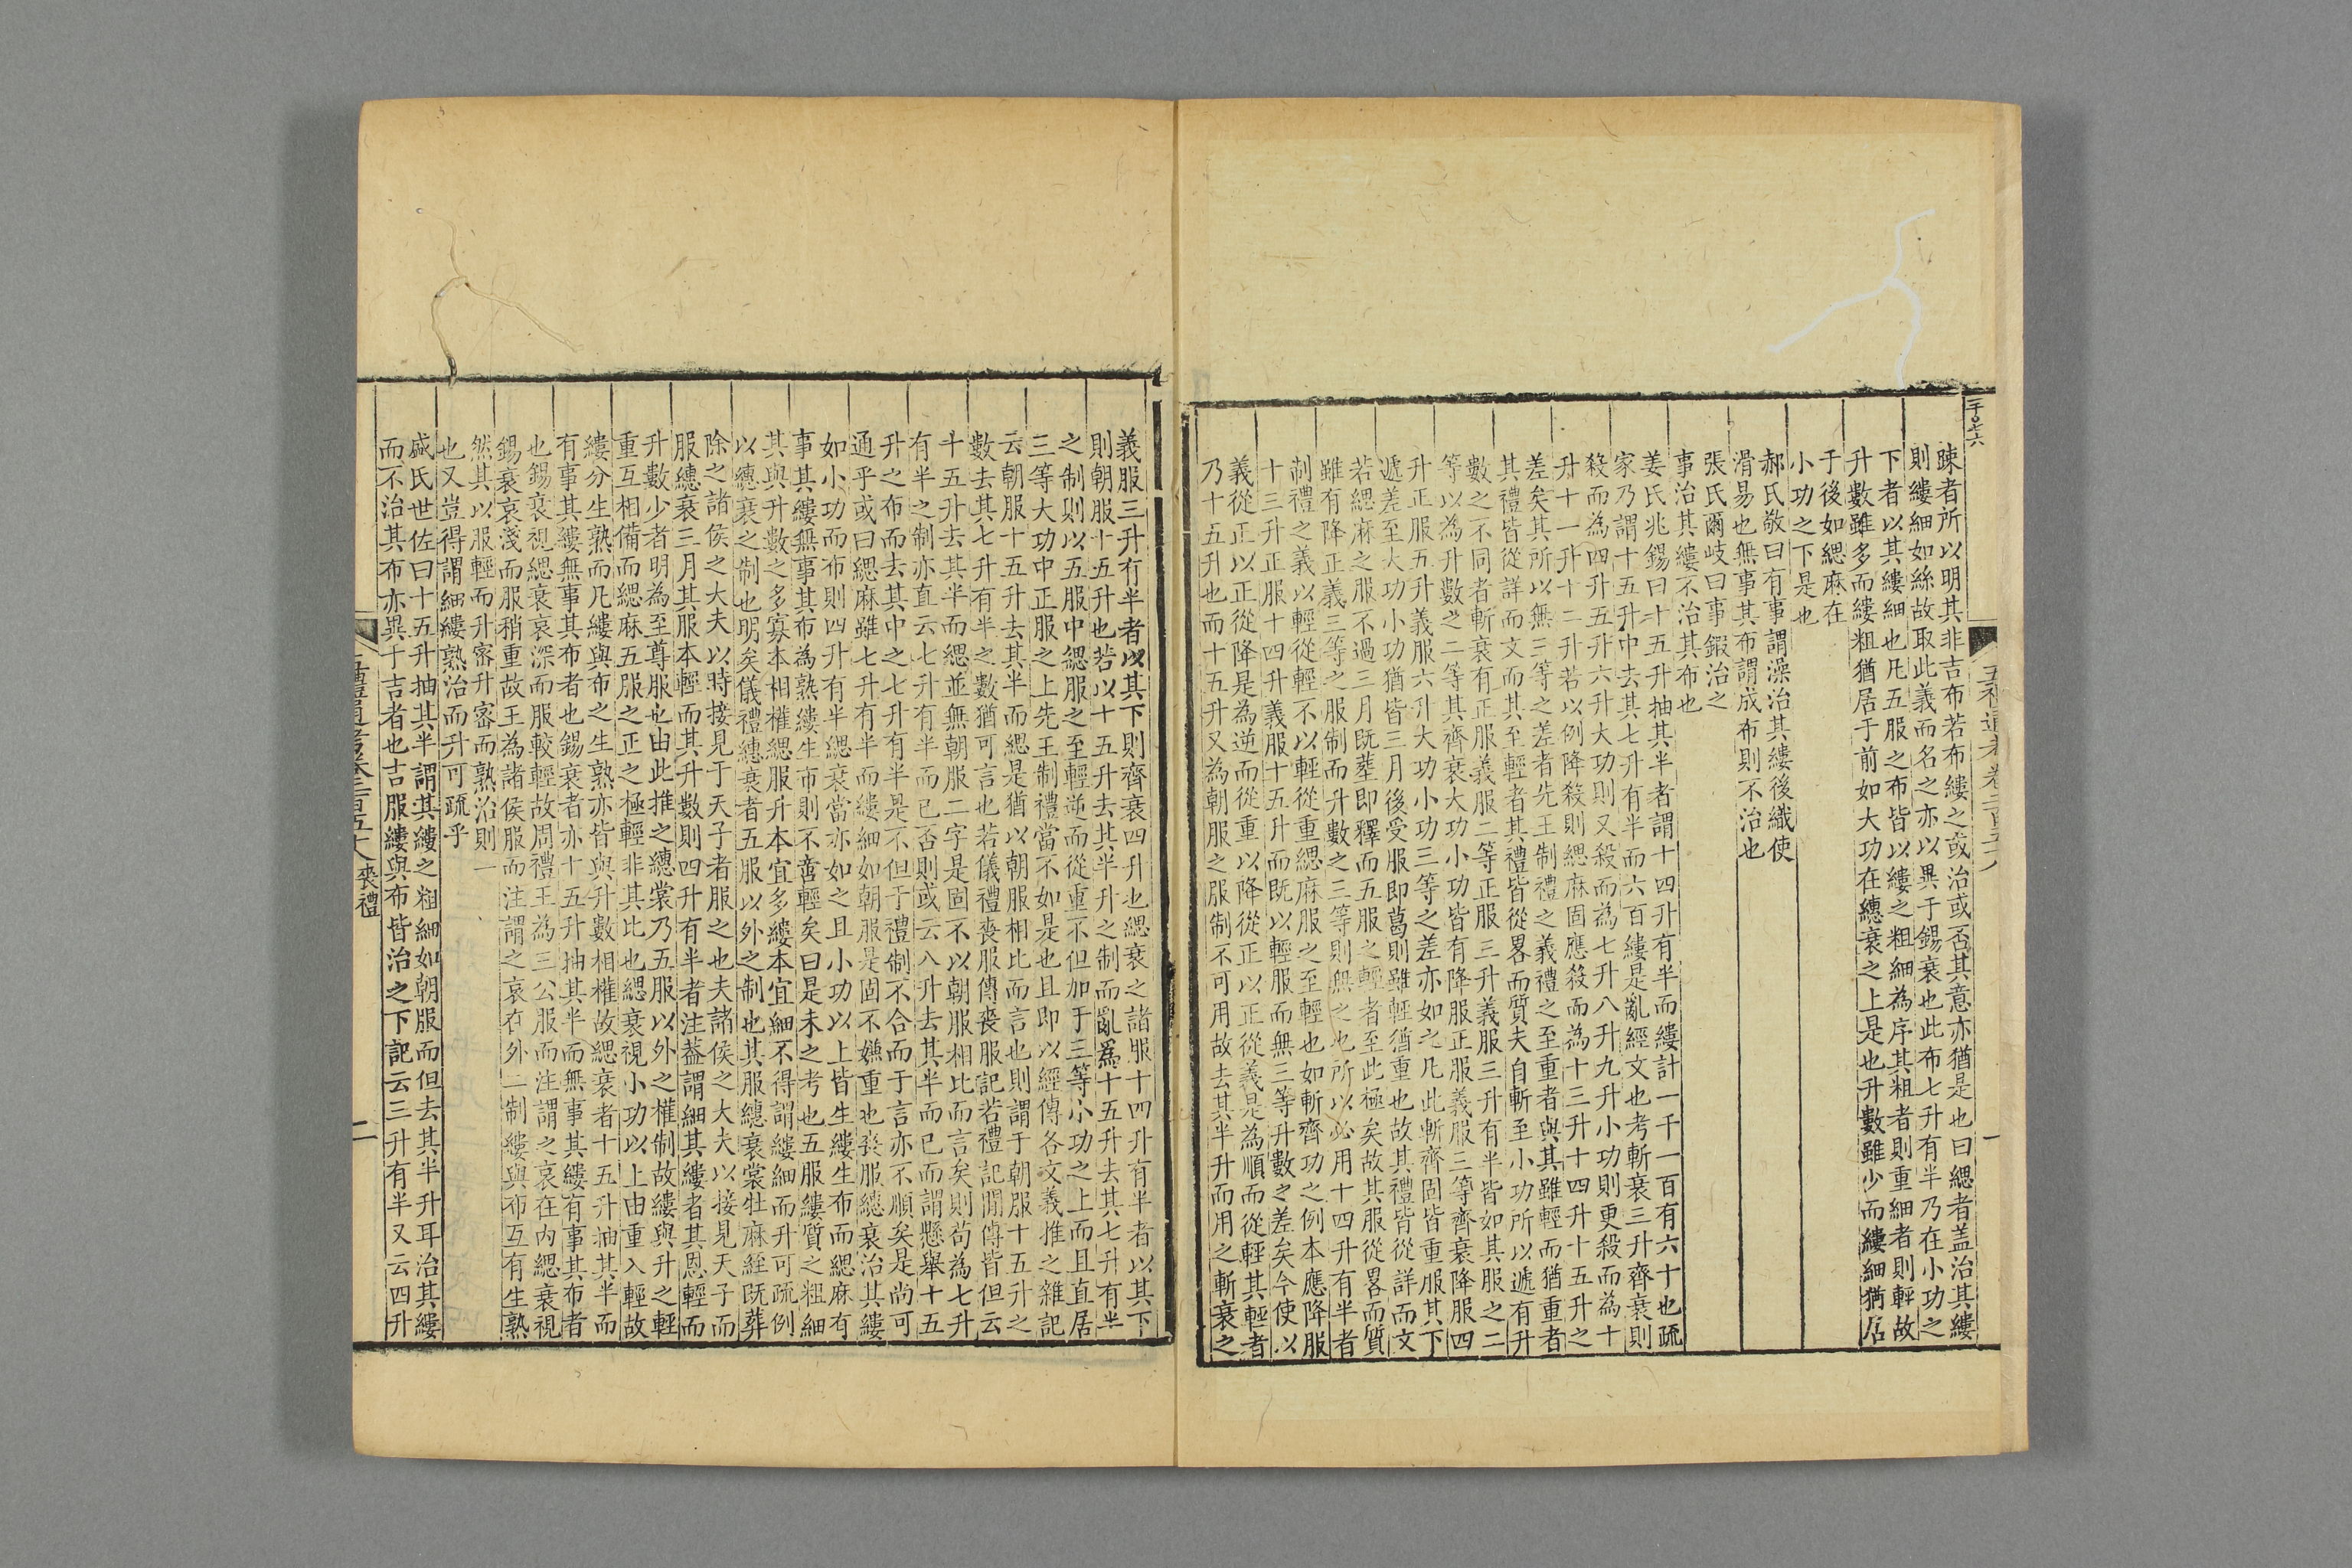 二千○七六
五禮通考卷二百五十八
一
疎者所以明其非吉布若布縷之或治或否其意亦猶是也曰緦者盖治其縷
則縷細如絲故取此義而名之亦以異于錫衰也此布七升有半乃在小功之
下者以其縷細也凡五服之布皆以縷之粗細為序其粗者則重細者則輕故
升數雖多而縷粗猶居于前如大功在繐衰之上是也升數雖少而縷細猶居
于後如緦麻在
小功之下是也
郝氏敬曰有事謂澡治其縷後織使
滑易也無事其布謂成布則不治也
張氏爾岐曰事鍜治之
事治其縷不治其布也
姜氏兆錫曰十五升抽其半者謂十四升有半而縷計一千一百有六十也疏
家乃謂十五升中去其七升有半而六百縷是亂經文也考斬衰三升齊衰則
殺而為四升五升六升大功則又殺而為七升八升九升小功則更殺而為十
升十一升十二升若以例降殺則緦麻固應殺而為十三升十四升十五升之
差矣其所以無三等之差者先王制禮之義禮之至重者與其雖輕而猶重者
其禮皆從詳而文而其至輕者其禮皆從畧而質夫自斬至小功所以遞有升
數之不同者斬衰有正服義服二等正服三升義服三升有半皆如其服之二
等以為升數之二等其齊衰大功小功皆有降服正服義服三等齊衰降服四
升正服五升義服六升大功小功三等之差亦如之凡此斬齊固皆重服其下
遞差至大功小功猶皆三月後受服即葛則雖輕猶重也故其禮皆從詳而文
若緦麻之服不過三月既葬即釋而五服之輕者至此極矣故其服從畧而質
雖有降正義三等之服制而升數之三等則無之也所以必用十四升有半者
制禮之義以輕從輕不以輕從重緦麻服之至輕也如斬齊功之例本應降服
十三升正服十四升義服十五升而既以輕服而無三等升數之差矣今使以
義從正以正從降是為逆而從重以降從正以正從義是為順而從輕其輕者
乃十五升也而十五升又為朝服之服制不可用故去其半升而用之斬衰之
義服三升有半者以其下則齊衰四升也緦衰之諸服十四升有半者以其下
則朝服十五升也若以十五升去其半升之制而亂為十五升去其七升有半
之制則以五服中緦服之至輕逆而從重不但加于三等小功之上而且直居
三等大功中正服之上先王制禮當不如是也且即以經傳各文義推之雜記
云朝服十五升去其半而緦是猶以朝服相比而言也則謂于朝服十五升之
數去其七升有半之數猶可言也若儀禮喪服傳喪服記若禮記閒傳皆但云
十五升去其半而緦並無朝服二字是固不以朝服相比而言矣則苟為七升
有半之制亦直云七升有半而已否則或云八升去其半而已而謂懸舉十五
升之布而去其中之七升有半是不但于禮制不合而于言亦不順矣是尚可
通乎或曰緦麻雖七升有半而縷細如朝服是固不嫌重也喪服繐衰治其縷
如小功而布則四升有半緦衰當亦如之且小功以上皆生縷生布而緦麻有
事其縷無事其布為熟縷生布則不啻輕矣曰是未之考也五服縷質之粗細
其與升數之多寡本相權緦服升本宜多縷本宜細不得謂縷細而升可疏例
以繐衰之制也明矣儀禮繐衰者五服以外之制也其服繐衰裳牡麻絰既葬
除之諸侯之大夫以時接見于天子者服之也夫諸侯之大夫以接見天子而
服繐衰三月其服本輕而其升數則四升有半者注葢謂細其縷者其恩輕而
升數少者明為至尊服也由此推之繐裳乃五服以外之權制故縷與升之輕
重互相備而緦麻五服之正之極輕非其比也緦衰視小功以上由重入輕故
縷分生熟而凡縷與布之生熟亦皆與升數相權故緦衰者十五升抽其半而
有事其縷無事其布者也錫衰者亦十五升抽其半而無事其縷有事其布者
也錫衰視緦衰哀深而服較輕故周禮王為三公服而注謂之哀在內緦衰視
錫衰哀淺而服稍重故王為諸侯服而注謂之哀在外二制縷與布互有生熟
然其以服輕而升密升密而熟治則一
也又豈得謂細縷熟治而升可疏乎
盛氏世佐曰十五升抽其半謂其縷之粗細如朝服而但去其半升耳治其縷
而不治其布亦異于吉者也吉服縷與布皆治之下記云三升有半又云四升
五禮通考卷二百五十八 喪禮
二